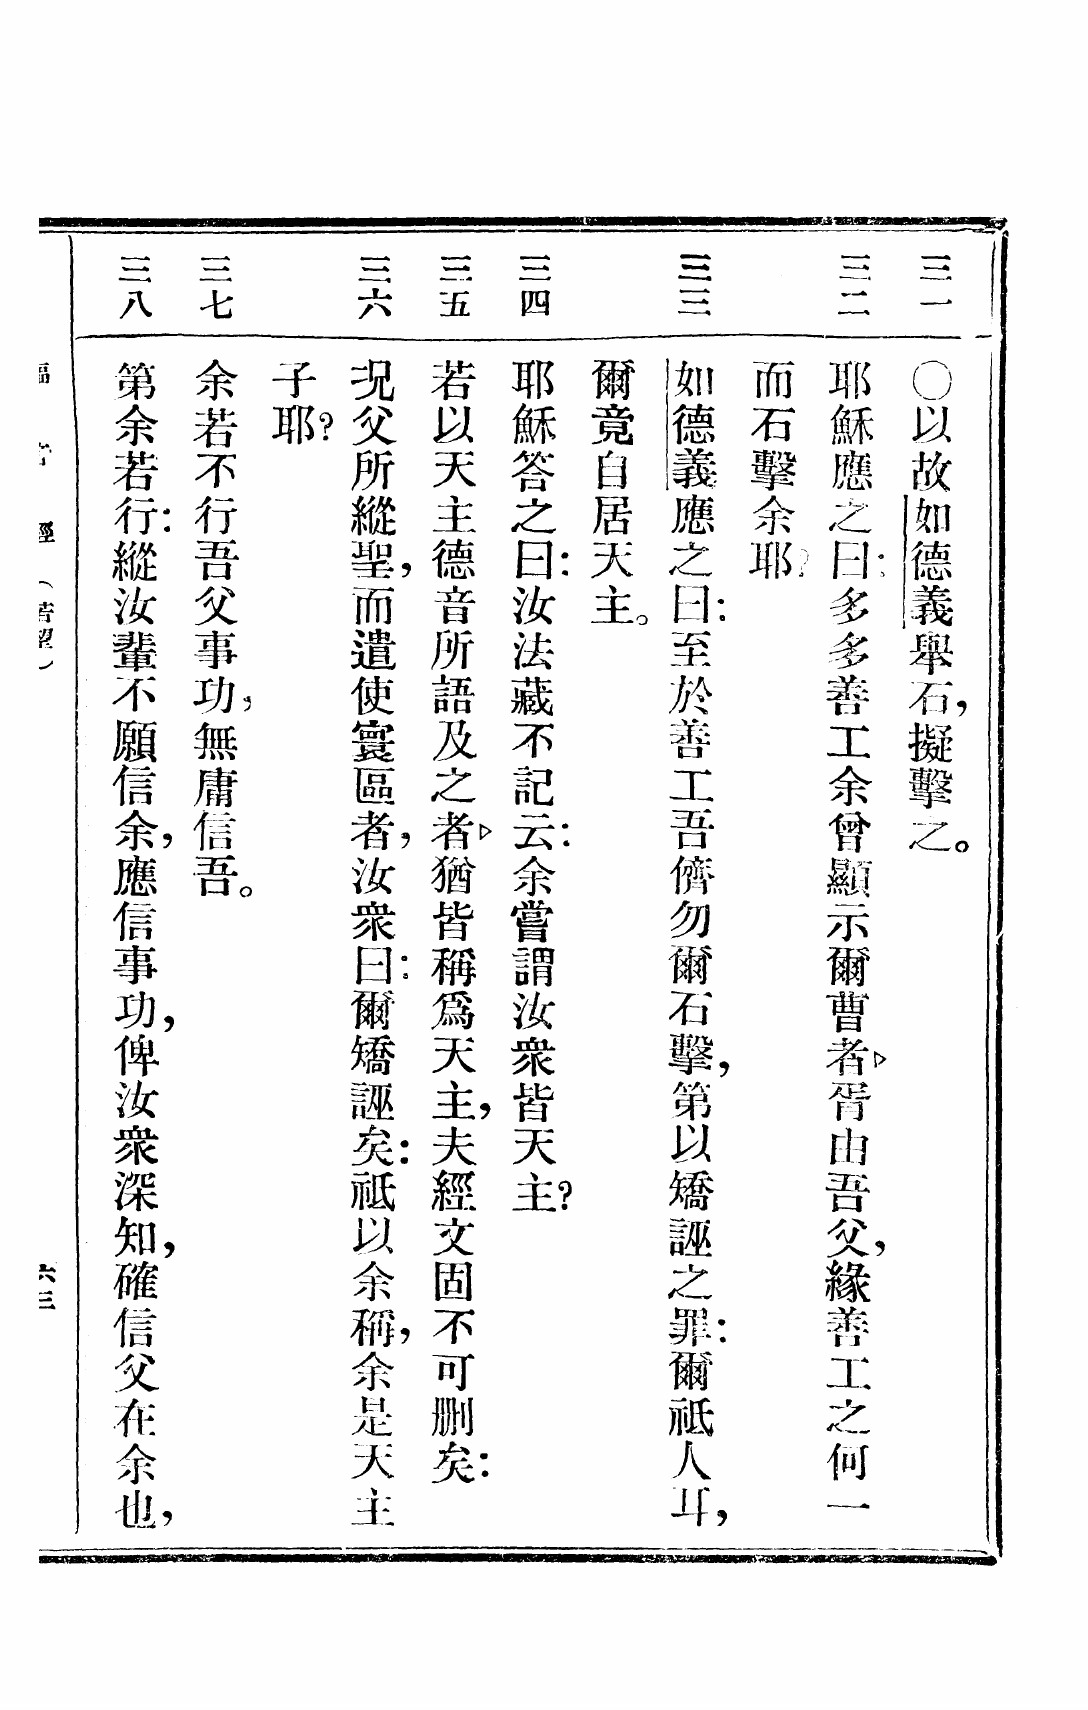 三一 〇以故如德義舉石，擬擊之。
三二 耶穌應之曰：多多善工余曾顯示爾曹者▷胥由吾父，緣善工之何一
而石擊余耶？
三三 如德義應之曰：至於善工吾儕勿爾石擊，第以矯誣之罪：爾祗人耳，
爾竟自居天主。
三四 耶穌答之曰：汝法藏不記云：余嘗謂汝衆皆天主？
三五 若以天主德音所語及之者▷猶皆稱爲天主，夫經文固不可删矣：
三六 况父所縱聖，而遣使寰區者，汝衆曰：爾矯誣矣：祗以余稱，余是天主
子耶？
三七 余若不行吾父事功，無庸信吾。
三八 第余若行：縱汝輩不願信余，應信事功，俾汝衆深知，確信父在余也，
經（若望） 六三